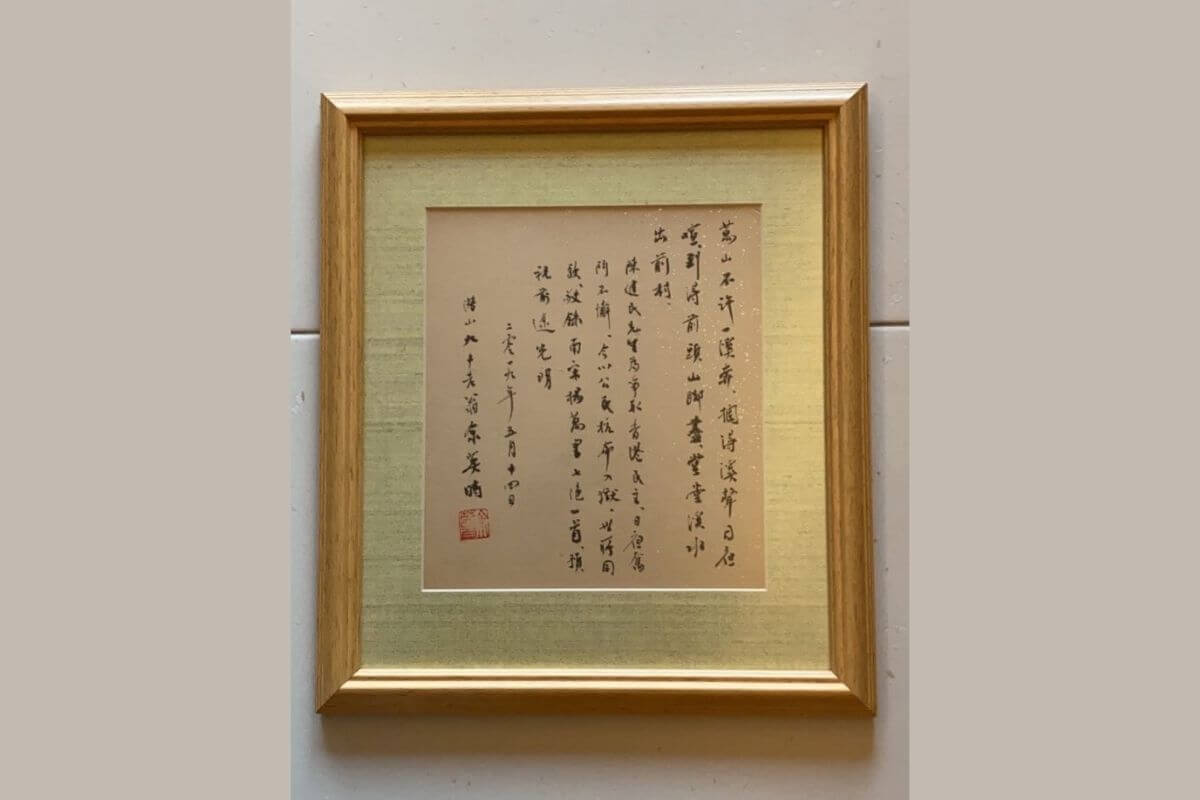 萬山不許一溪奔、攔得溪聲日夜
喧、到得前頭山腳盡、堂堂溪水
出前村、
陳建民先生為爭取香港民主、日夜奮
鬥不懈、今以公民抗命入獄、世所同
欽、敬錄南宋楊萬里七絕一首、預
祝前途光明
二零一九年五月十四日
潛山九十老翁余英時